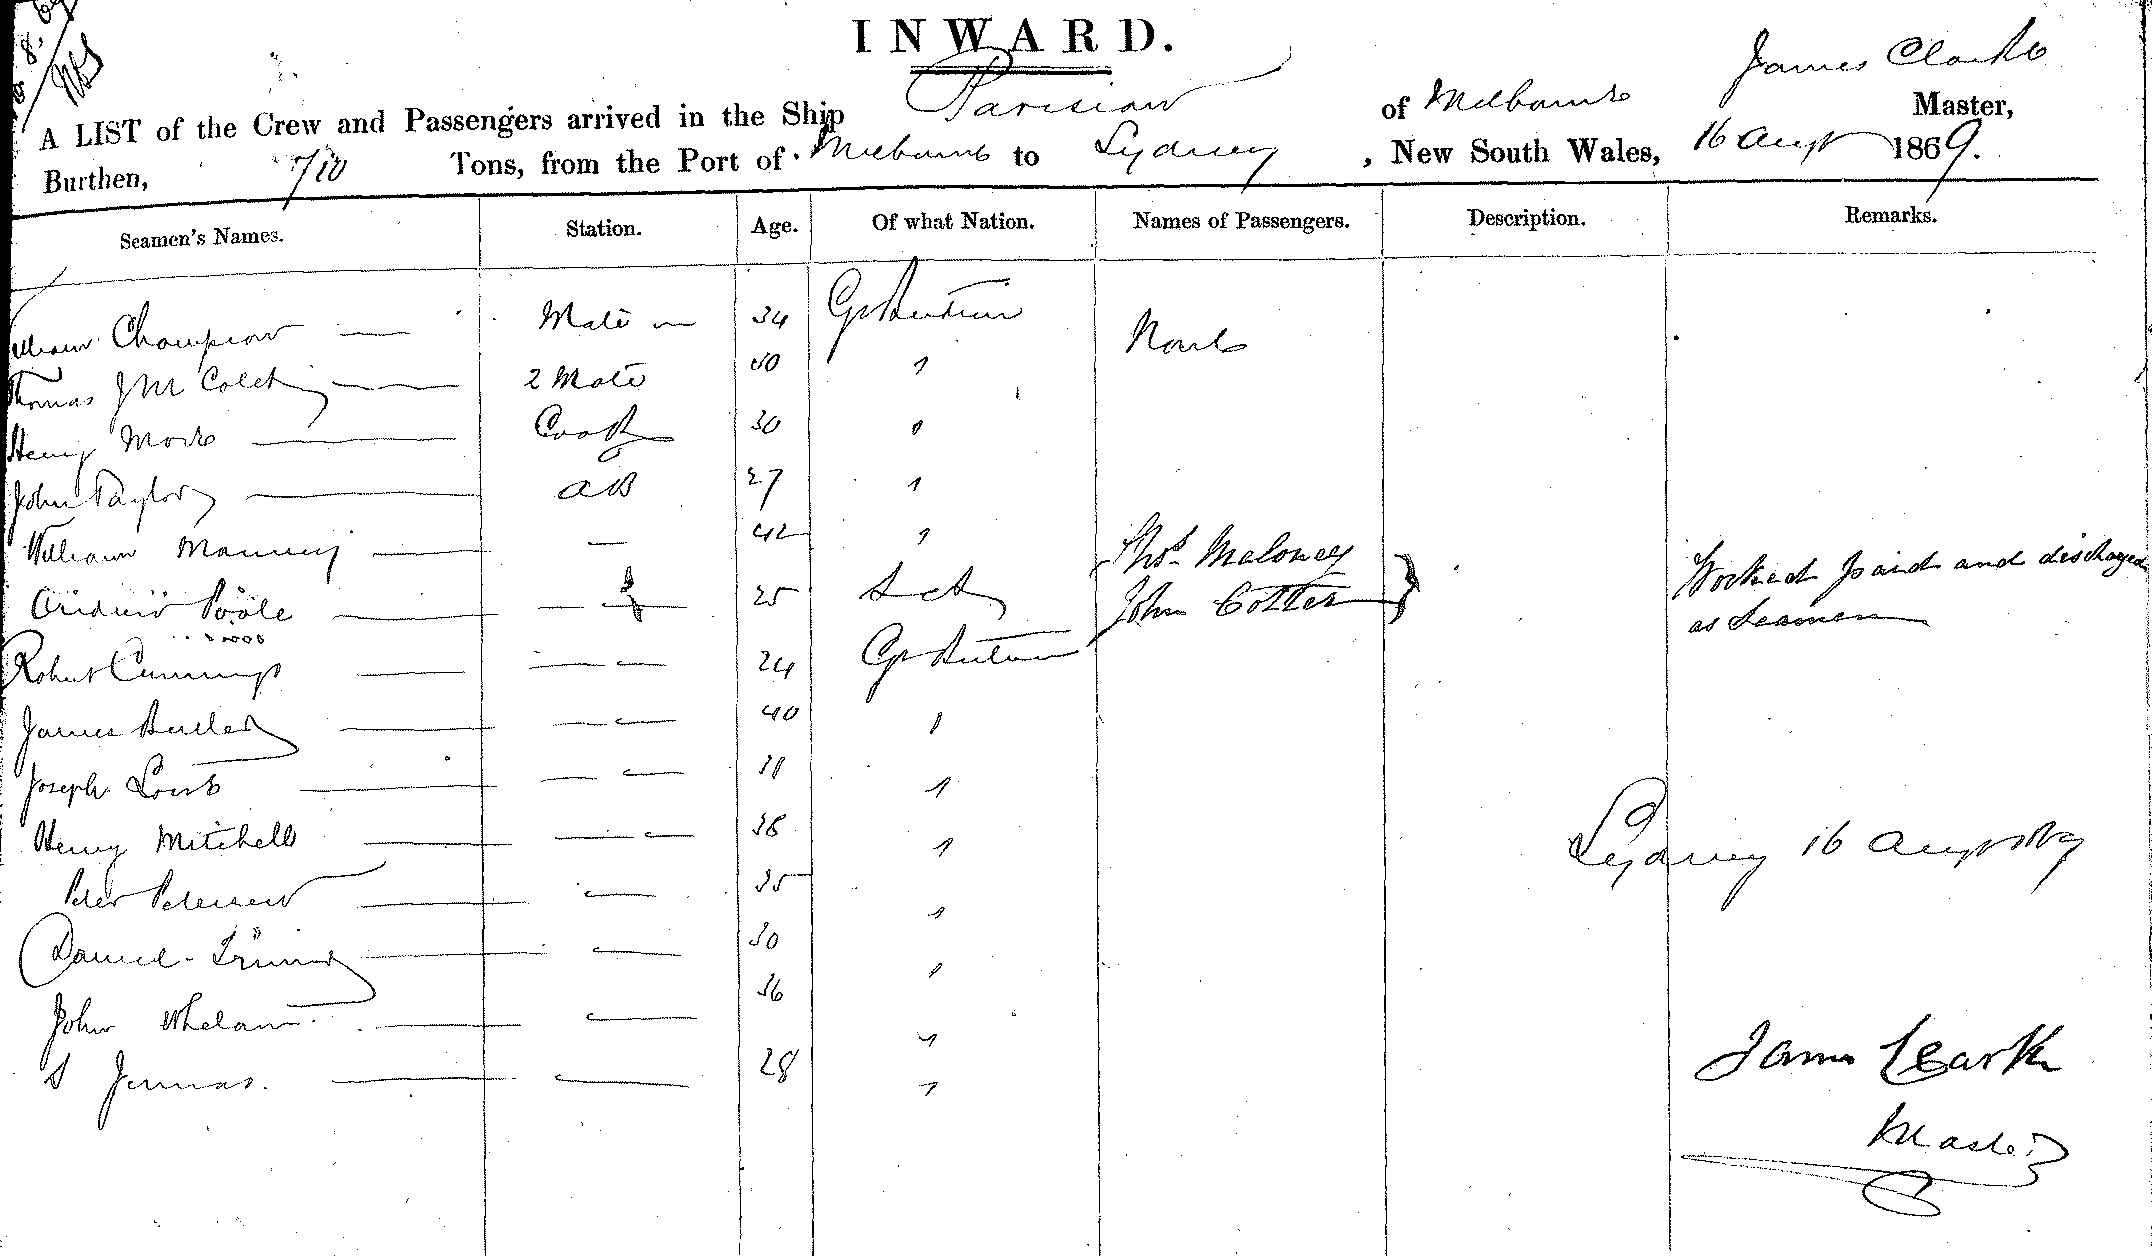 INWARD.
A LIST of the Crew and Passengers arrived in the Ship Parisian of Melbourne James Clarke Master,
Burthen, 710 Tons, from the Port of Melbourne to Sydney, New South Wales, 16 Augt 1869.
Seamen's Names. Station. Age. Of what Nation. Names of Passengers. Description. Remarks.
William Champion — Mate — 34 Gt Britain None
Thomas — 2 Mate "
Henry — Cook 30 "
John Taylor — AB 27 "
William — — 42 " Thos Maloney Worked paid and discharged
Poole — — 25 John Cotter } as Seamen
Robert Cummings — — 24 Gt Britain
James Butler — — 40 "
Joseph — — 31 "
Henry Mitchell — — 36 " Sydney 16 Augst 69
Peter Petersen — — 35 "
Daniel — — 30 "
John Whelan — — 36 "
S — — 28 "
James Clark
Master